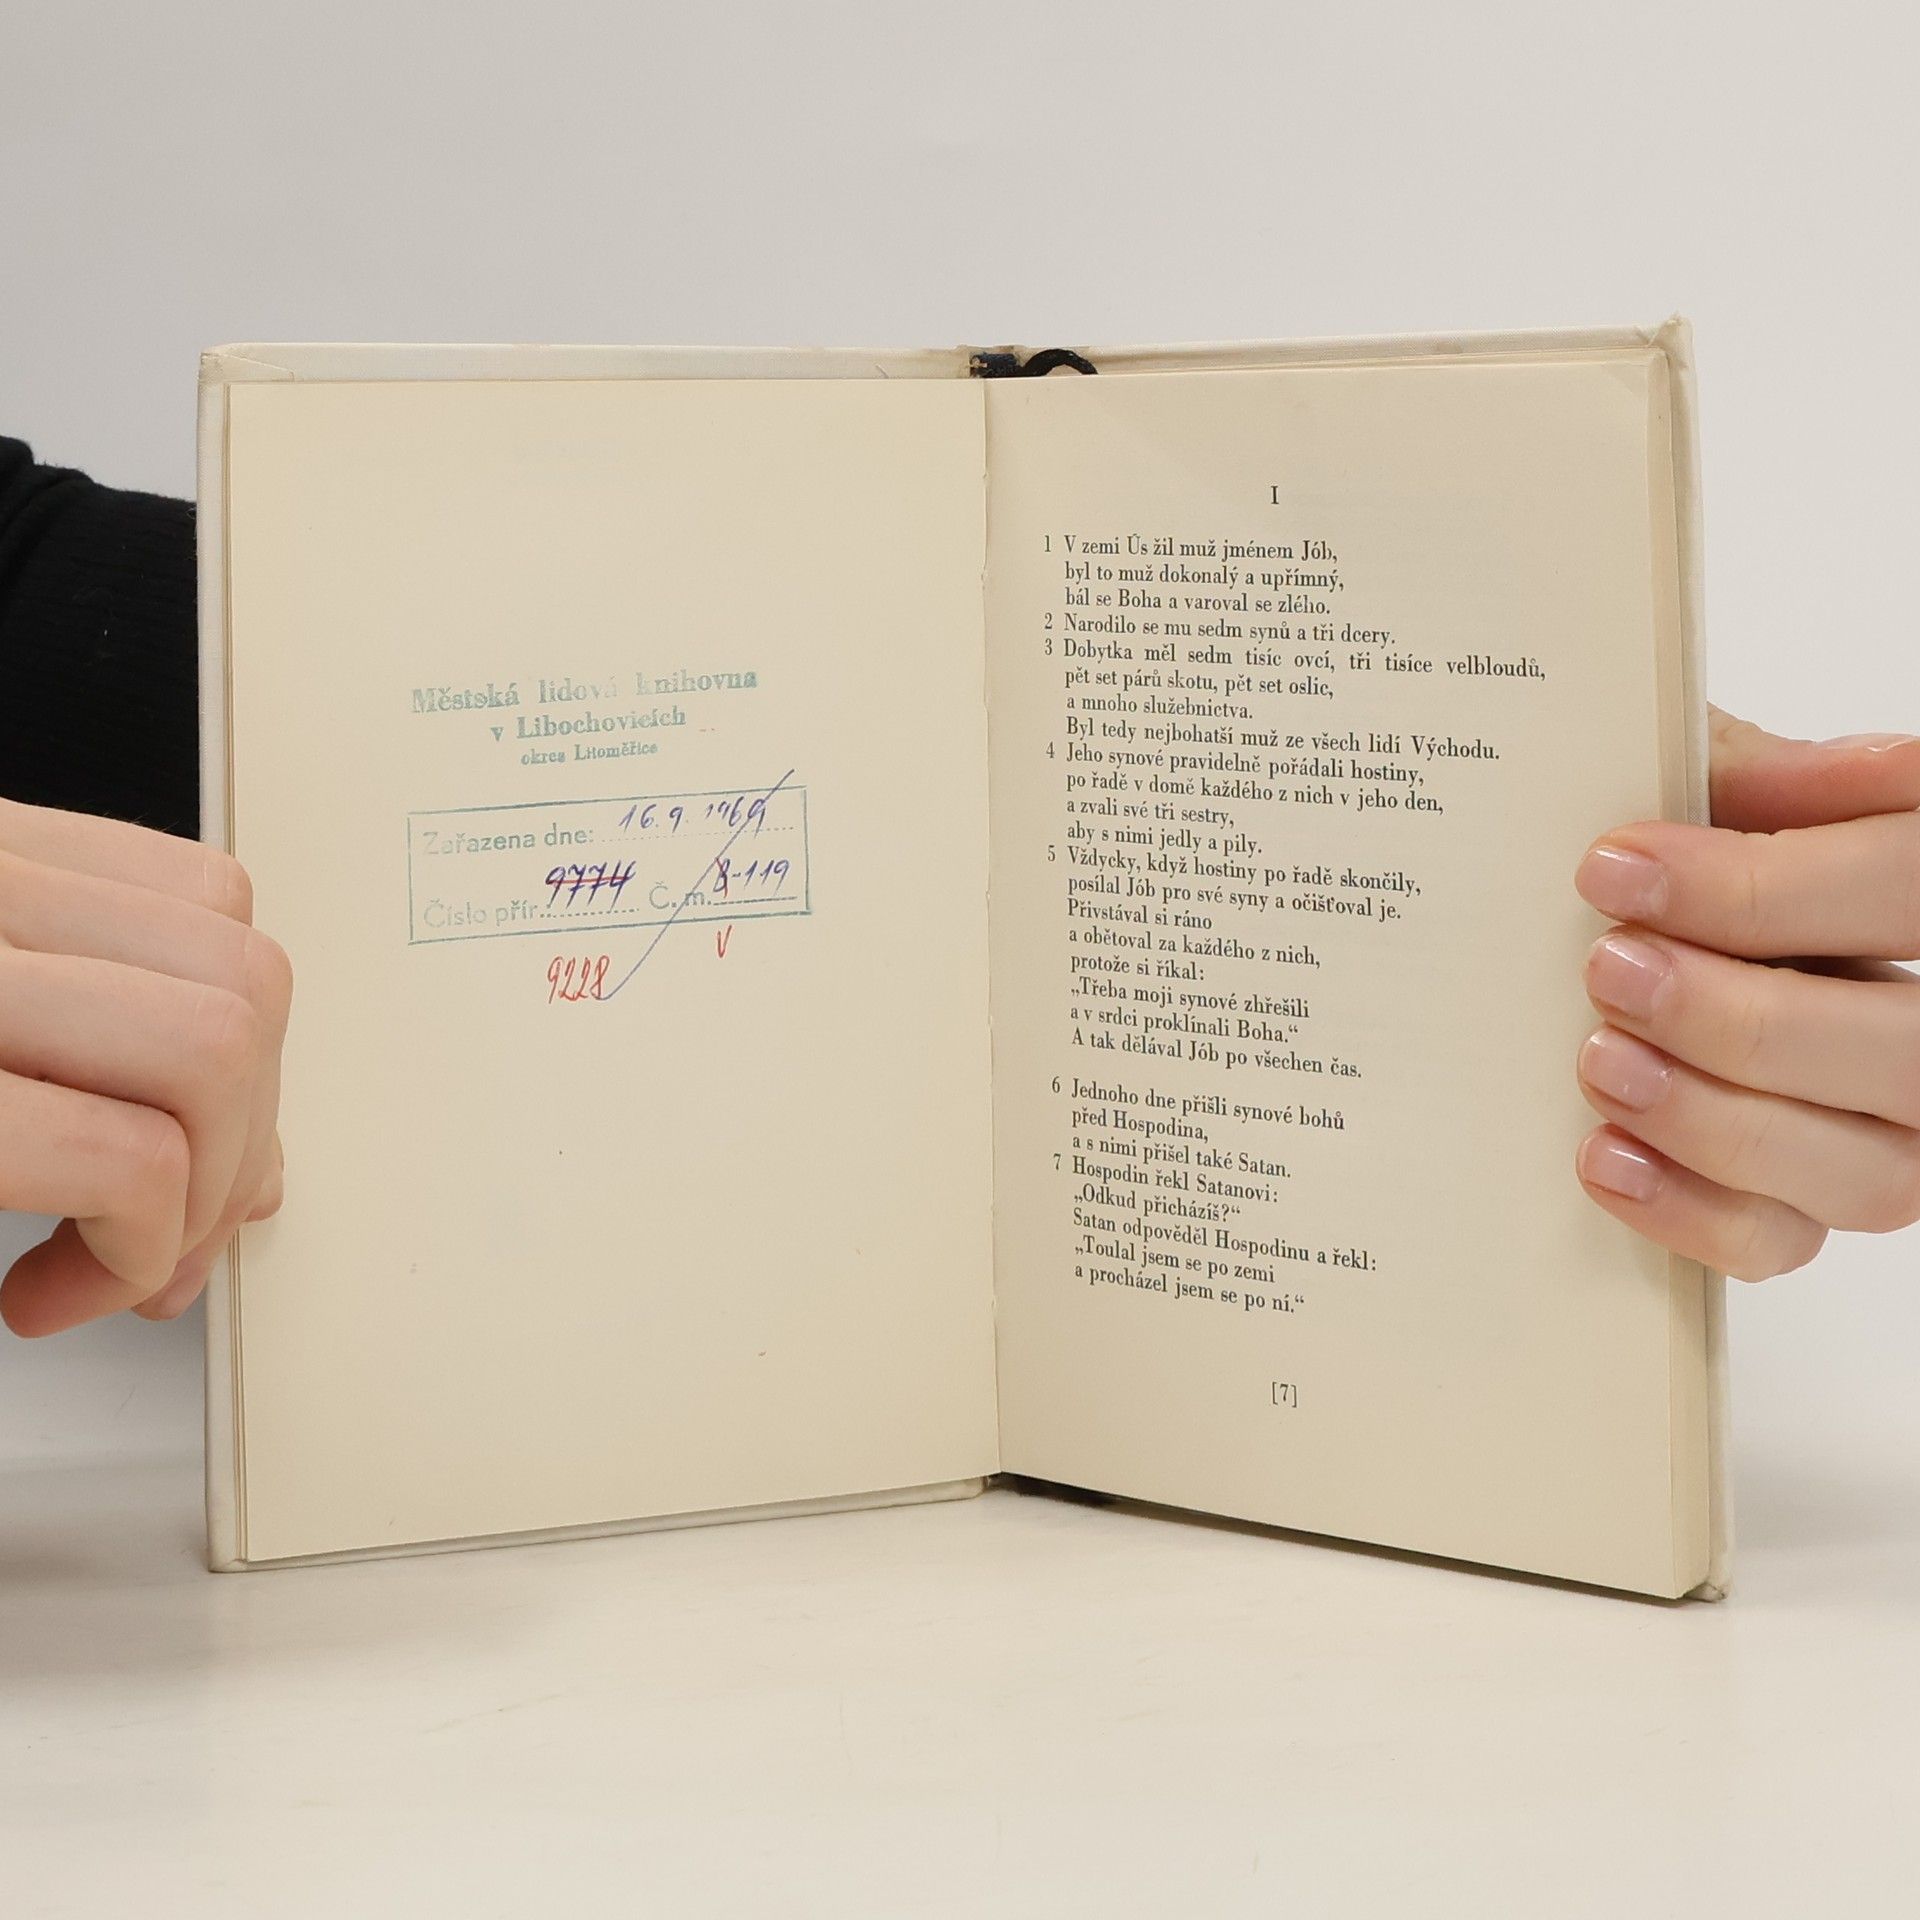 Městská lidová knihovna
v Libochovicích
okres Litoměřice
Zařazena dne: 16. 9. 1969
Číslo přír. 9774 Č. m. 8-119
9228 V
I
1 V zemi Ús žil muž jménem Jób,
byl to muž dokonalý a upřímný,
bál se Boha a varoval se zlého.
2 Narodilo se mu sedm synů a tři dcery.
3 Dobytka měl sedm tisíc ovcí, tři tisíce velbloudů,
pět set párů skotu, pět set oslic,
a mnoho služebnictva.
Byl tedy nejbohatší muž ze všech lidí Východu.
4 Jeho synové pravidelně pořádali hostiny,
po řadě v domě každého z nich v jeho den,
a zvali své tři sestry,
aby s nimi jedly a pily.
5 Vždycky, když hostiny po řadě skončily,
posílal Jób pro své syny a očišťoval je.
Přivstával si ráno
a obětoval za každého z nich,
protože si říkal:
„Třeba moji synové zhřešili
a v srdci proklínali Boha.“
A tak dělával Jób po všechen čas.
6 Jednoho dne přišli synové bohů
před Hospodina,
a s nimi přišel také Satan.
7 Hospodin řekl Satanovi:
„Odkud přicházíš?“
Satan odpověděl Hospodinu a řekl:
„Toulal jsem se po zemi
a procházel jsem se po ní.“
[7]